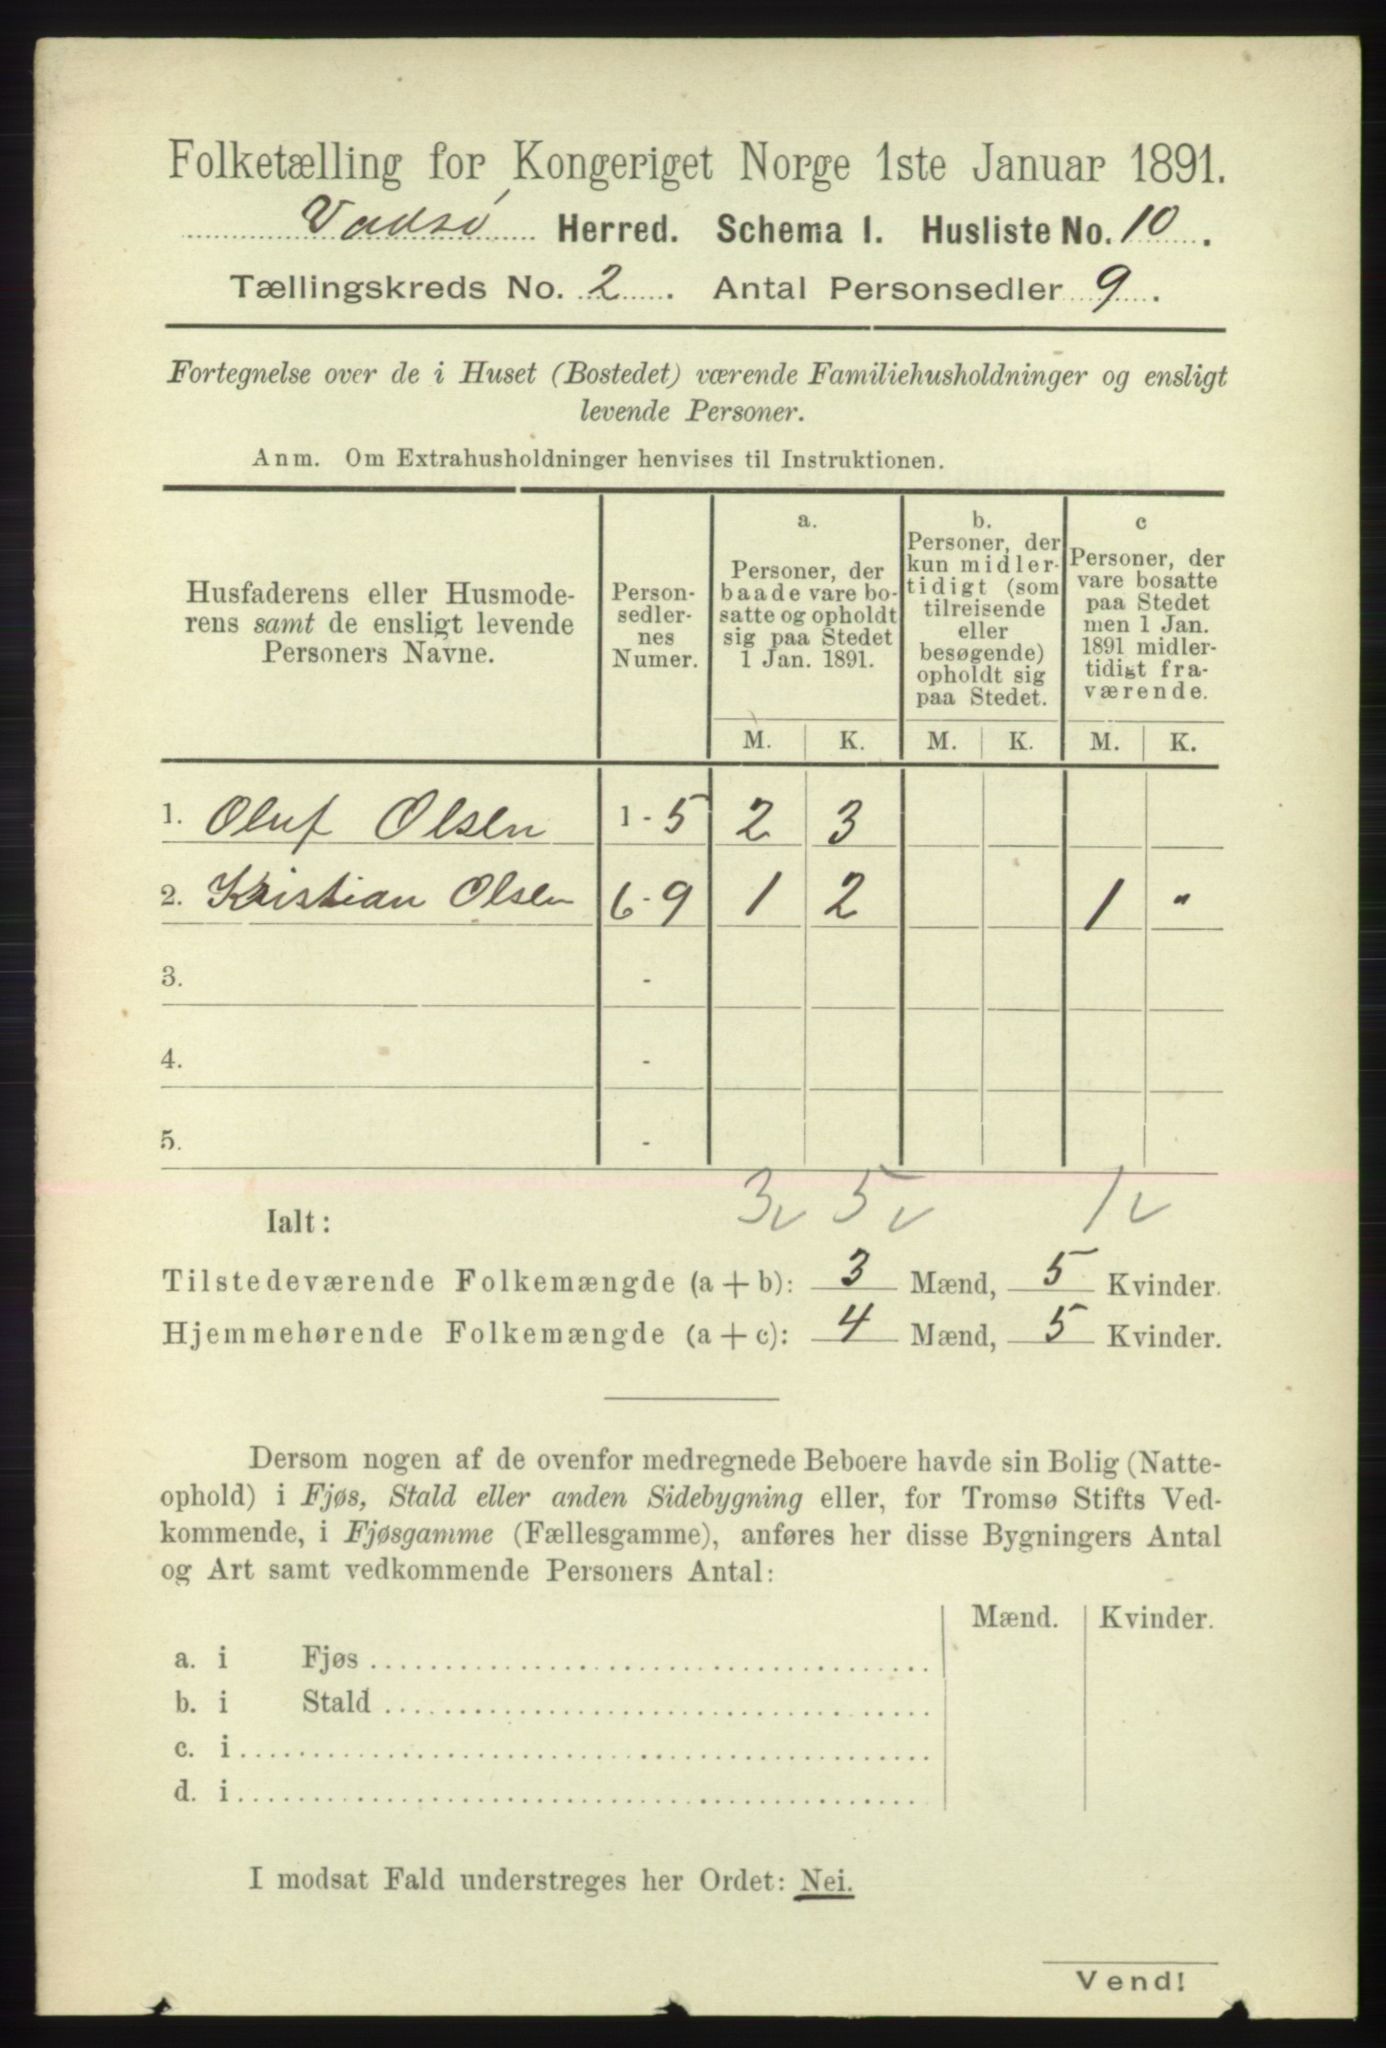 Folketælling for Kongeriget Norge 1ste Januar 1891.
Vadsø Herred. Schema I. Husliste No. 10.
Tællingskreds No. 2. Antal Personsedler 9.
Fortegnelse over de i Huset (Bostedet) værende Familiehusholdninger og ensligt
levende Personer.
Anm. Om Extrahusholdninger henvises til Instruktionen.
Husfaderens eller Husmode-
rens samt de ensligt levende
Personers Navne.
Person-
sedler-
nes
Numer.
a.
Personer, der
baade vare bo-
satte og opholdt
sig paa Stedet
1 Jan. 1891.
b.
Personer, der
kun midler-
tidigt (som
tilreisende
eller
besøgende)
opholdt sig
paa Stedet.
c
Personer, der
vare bosatte
paa Stedet
men 1 Jan.
1891 midler-
tidigt fra-
værende.
M. K. M. K. M. K.
1. Oluf Olsen 1 - 5 2 3
2. Kristian Olsen 6 - 9 1 2 1 "
3. -
4. -
5. -
3 v 5 v 1 v
Ialt:
Tilstedeværende Folkemængde (a + b): 3 Mænd, 5 Kvinder.
Hjemmehørende Folkemængde (a + c): 4 Mænd, 5 Kvinder.
Dersom nogen af de ovenfor medregnede Beboere havde sin Bolig (Natte-
ophold) i Fjøs, Stald eller anden Sidebygning eller, for Tromsø Stifts Ved-
kommende, i Fjøsgamme (Fællesgamme), anføres her disse Bygningers Antal
og Art samt vedkommende Personers Antal:
Mænd. Kvinder.
a. i Fjøs
b. i Stald
c. i
d. i
I modsat Fald understreges her Ordet: Nei.
Vend!